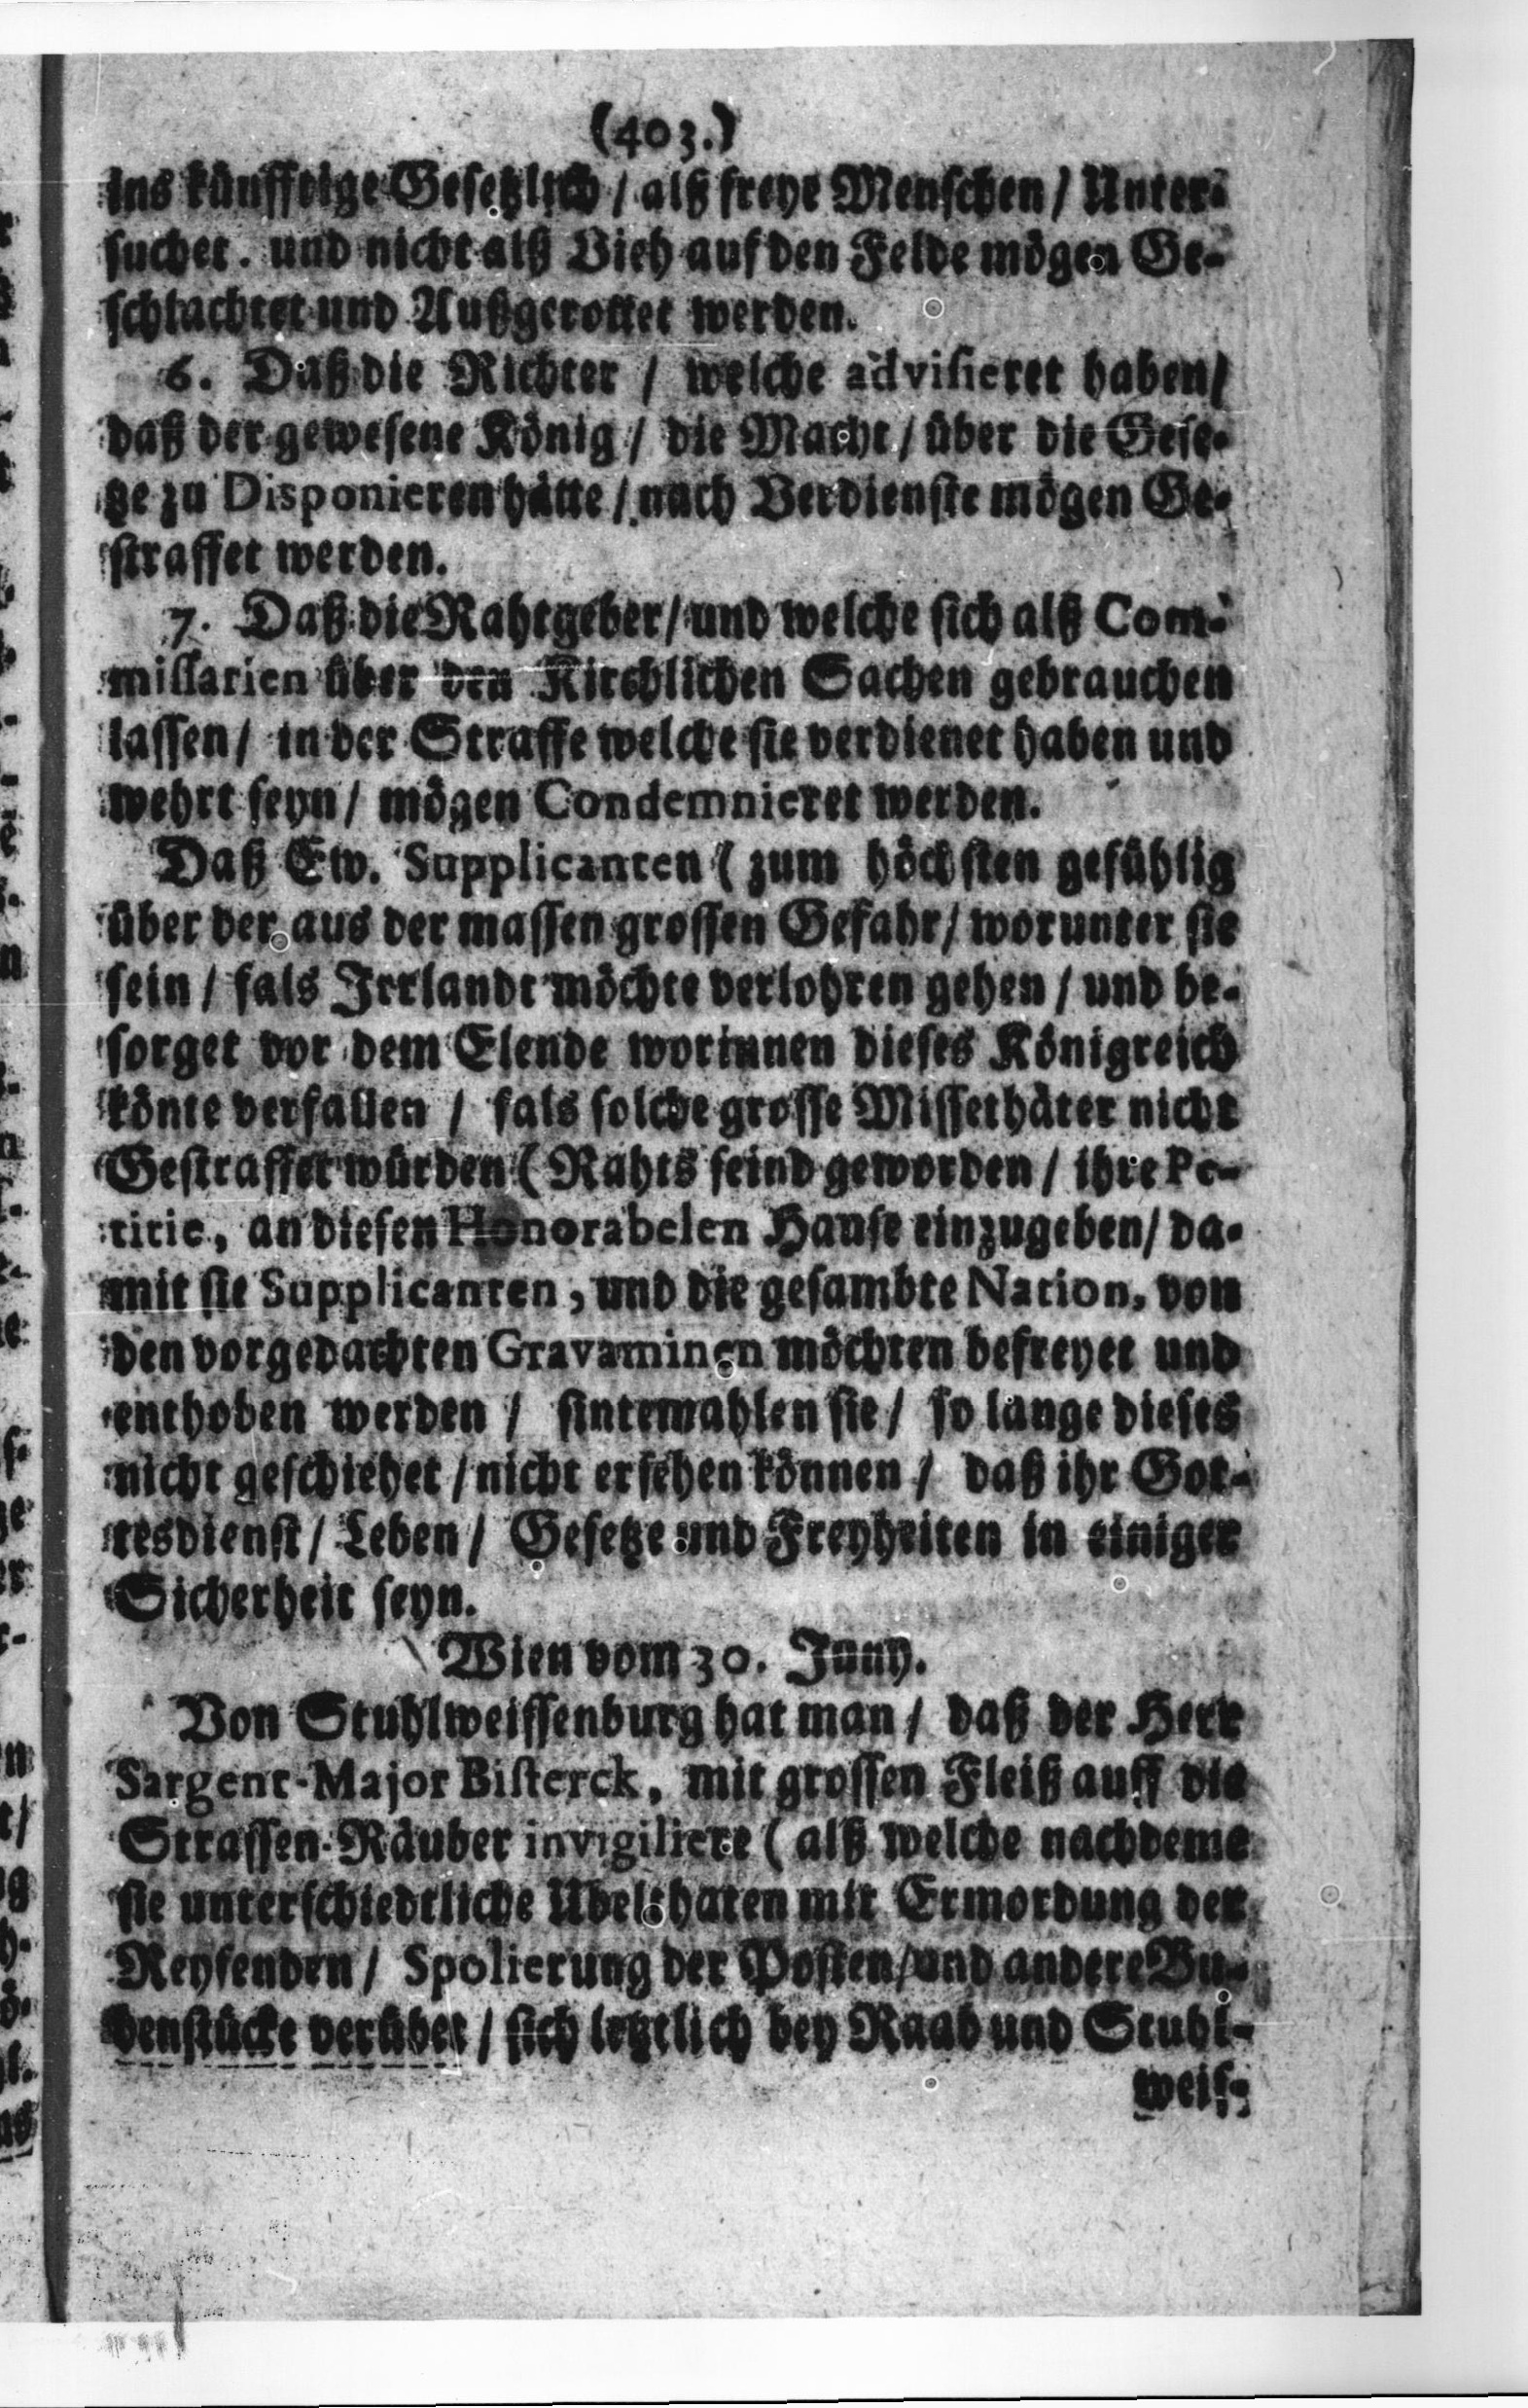 (403.)
ins künfftige Gesetzlich / alß freye Menschen / Unter-
suchet. und nicht alß Vieh auf den Felde mögen Ge-
schlachtet und Außgerottet werden.
6. Daß die Richter / welche advisieret haben /
daß der gewesene König / die Macht / über die Gese-
tze zu Disponieren hätte / nach Verdienste mögen Ge-
straffet werden.
7. Daß die Rahtgeber / und welche sich alß Com-
missarien über den Kirchlichen Sachen gebrauchen
lassen / in der Straffe welche sie verdienet haben und
wehrt seyn / mögen Condemnieret werden.
Daß Ew. Supplicanten ( zum höchsten gefühlig
über der aus der massen grossen Gefahr / worunter sie
sein / fals Irrlandt möchte verlohren gehen / und be-
sorget vor dem Elende worinnen dieses Königreich
könte verfallen / fals solche grosse Missethäter nicht
Gestraffet würden ( Rahts seind geworden / ihre Pe-
titie, an diesen Honorabelen Hause einzugeben / da-
mit sie Supplicanten, und die gesambte Nation, von
den vorgedachten Gravaminen möchten befreyet und
enthoben werden / sintemahlen sie / so lange dieses
nicht geschiehet / nicht ersehen können / daß ihr Got-
tesdienst / Leben / Gesetze und Freyheiten in einiger
Sicherheit seyn.
Wien vom 30. Juny.
Von Stuhlweissenburg hat man / daß der Herr
Sargent-Major Bisterck, mit grossen Fleiß auff die
Strassen-Räuber invigiliere ( alß welche nachdeme
sie unterschiedtliche Ubelthaten mit Ermordung der
Reysenden / Spolierung der Posten / und andere Bu-
benstücke verübet / sich letztlich bey Raab und Stuhl-
weis-